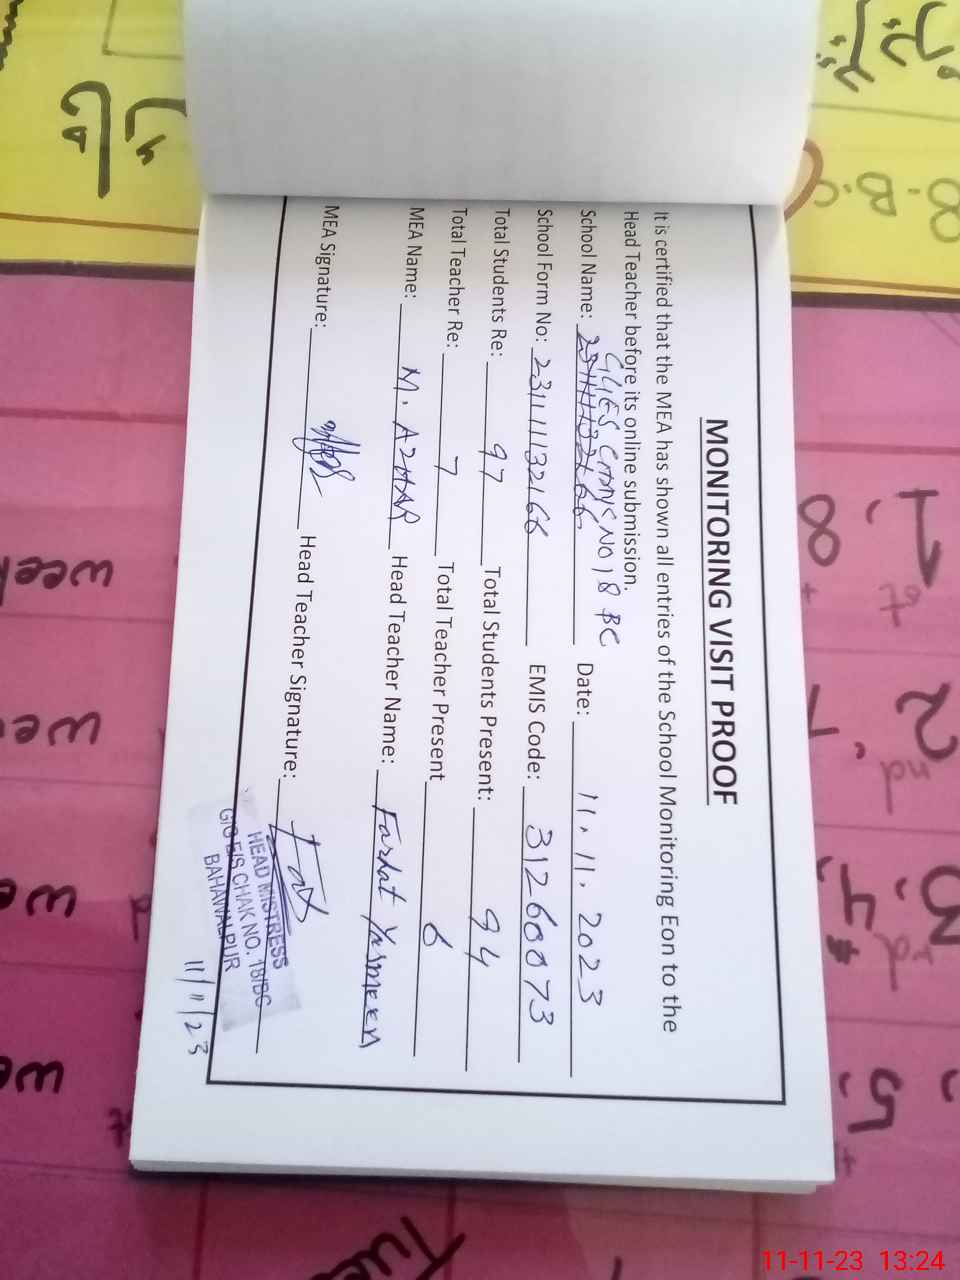 MONITORING VISIT PROOF
It is certified that the MEA has shown all entries of the School Monitoring Eon to the
Head Teacher before its online submission.
School Name: NO 18 BC Date: 11.11.2023
School Form No: 231111132166 EMIS Code: 31260073
Total Students Re: 97 Total Students Present: 94
Total Teacher Re: 7 Total Teacher Present 6
MEA Name: M. AZHAR Head Teacher Name: Farhat Yasmeen
MEA Signature: Head Teacher Signature:
HEAD MISTRESS
G/G E/S CHAK NO. 18/BC
BAHAWALPUR
11/11/23
8.B.C
1st
2nd
3rd
5.
week
Tue
11-11-23 13:24